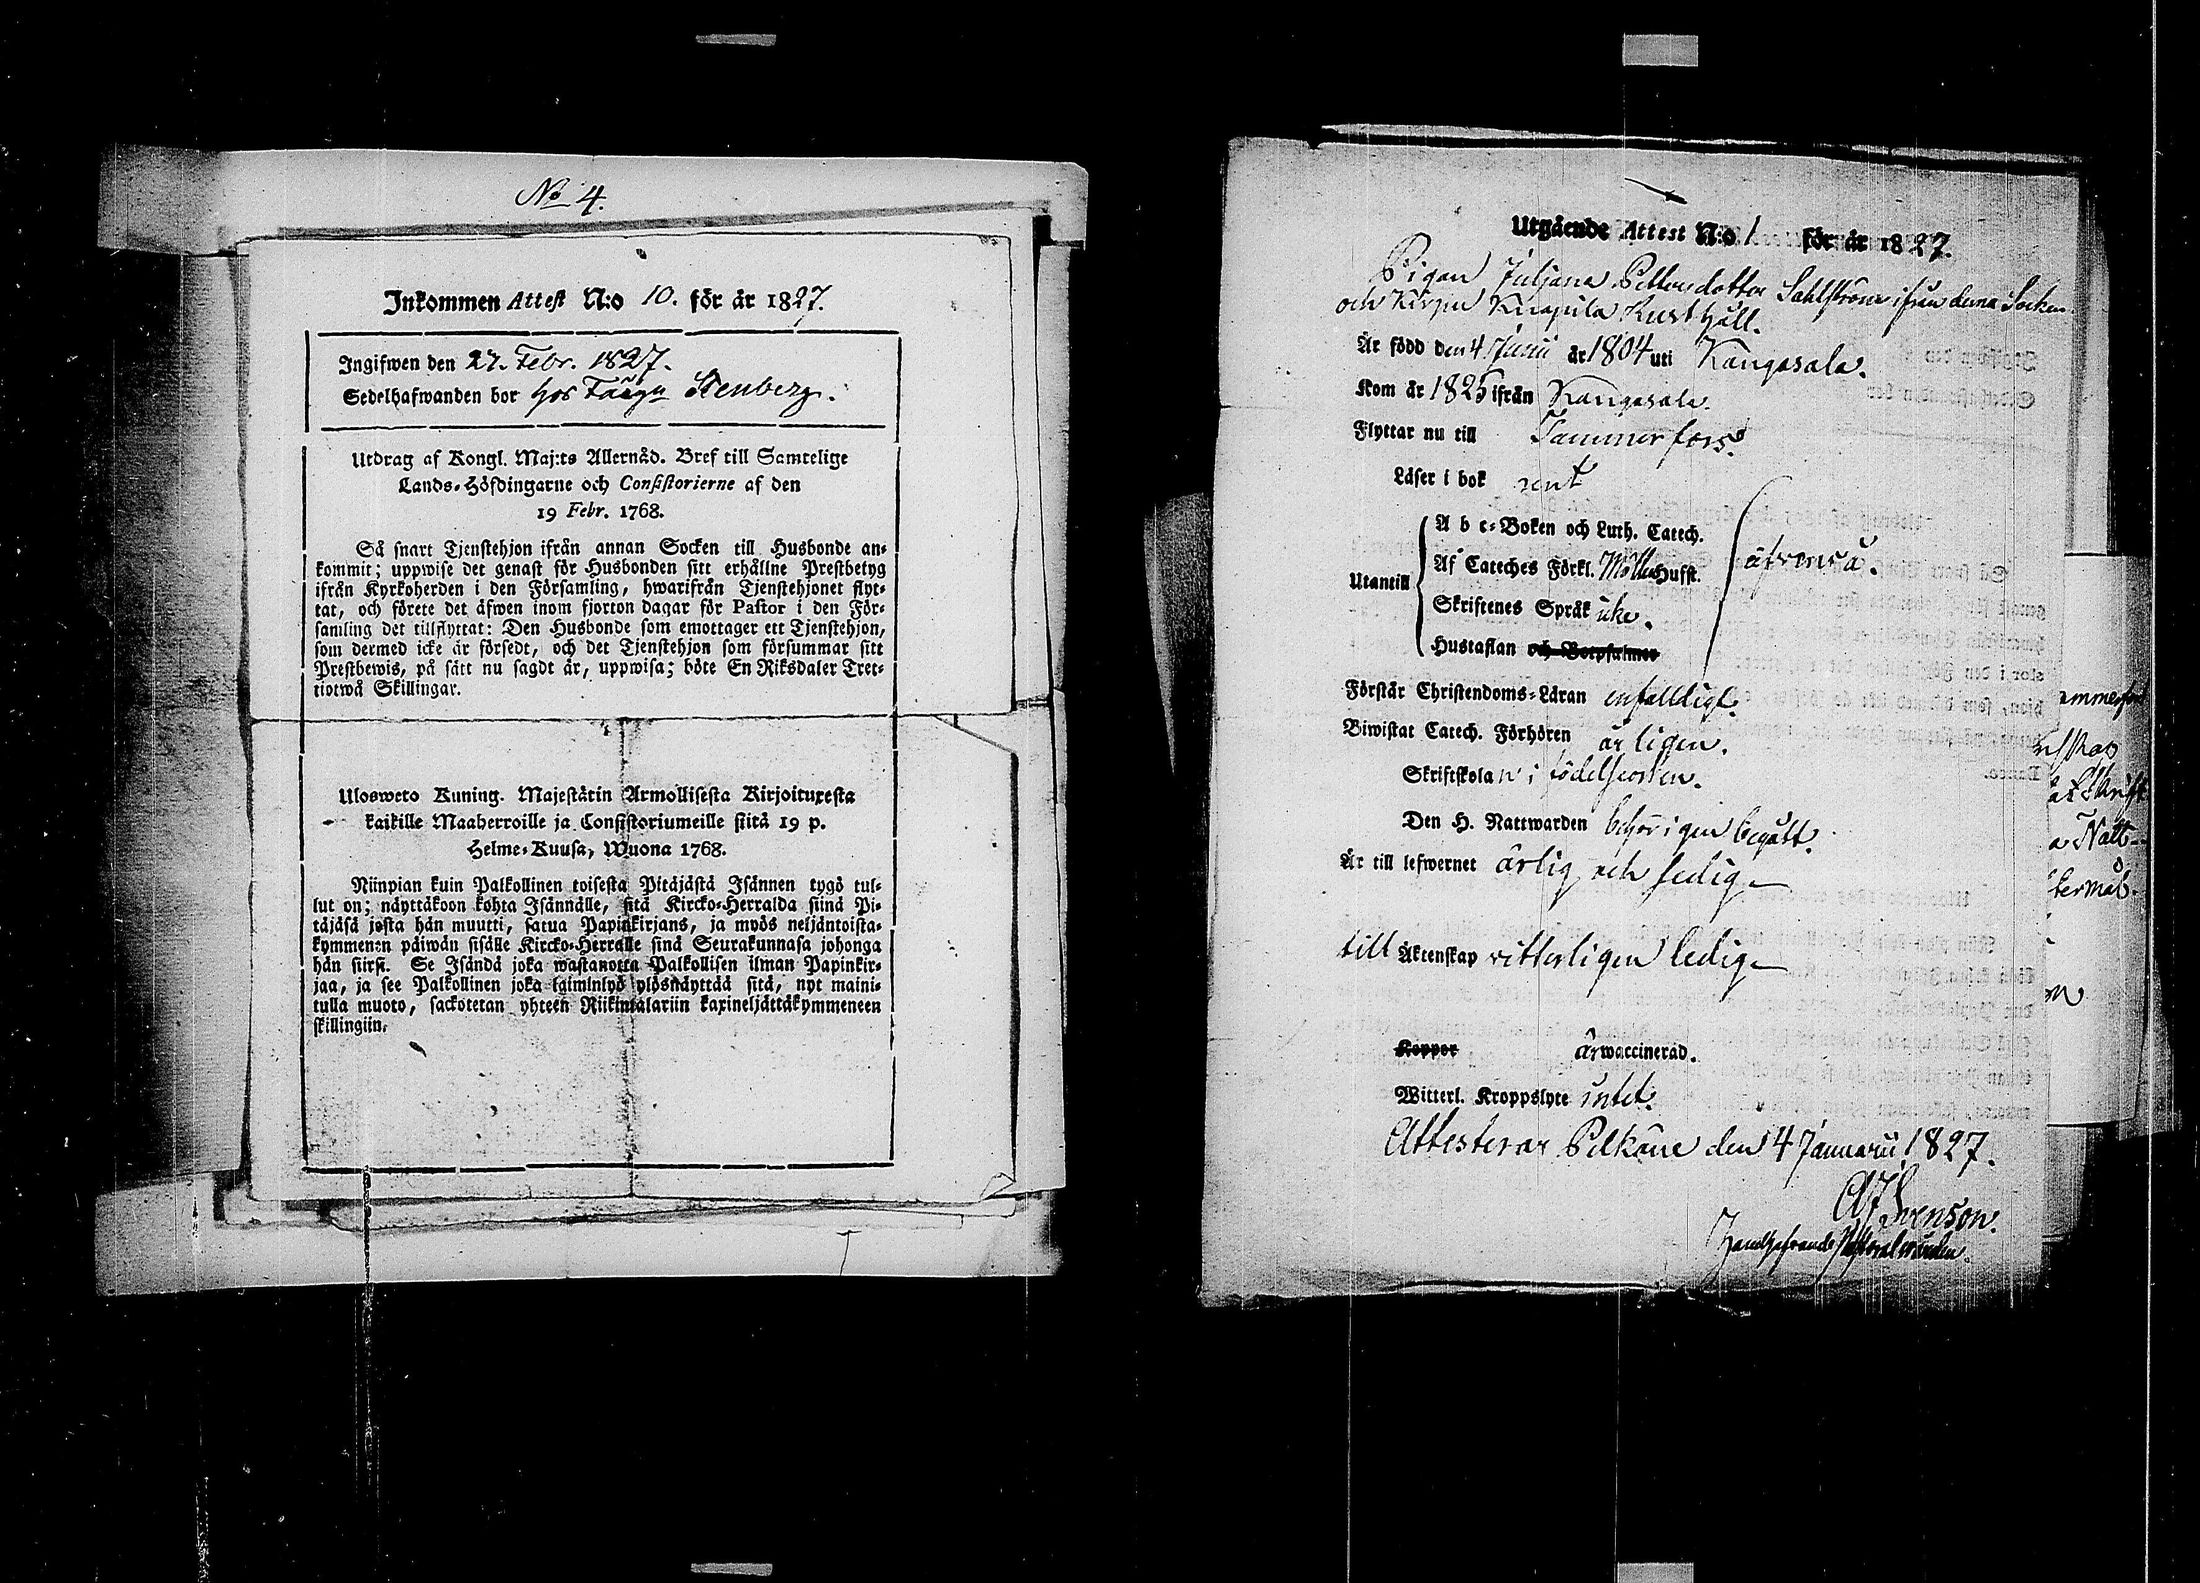 No 4.
Inkommen Attest N:o 10. för år 1827.
Ingifwen den 27. Febr. 1827.
Sedelhafwanden bor hos Färgn Stenberg.
Utdrag af Kongl. Maj:ts Allernåd. Bref till Samtelige
Lands-Höfdingarne och Consistorierne af den
19 Febr. 1768.
Så snart Tjenstehjon ifrån annan Socken till Husbonde an-
kommit; uppwise det genast för Husbonden sitt erhållne Prestbetyg
ifrån Kyrkoherden i den Församling, hwarifrån Tjenstehjonet flyt-
tat, och förete det äfwen inom fjorton dagar för Pastor i den För-
samling det tillflyttat: Den Husbonde som emottager ett Tjenstehjon,
som dermed icke är försedt, och det Tjenstehjon som försummar sitt
Prestbewis, på sätt nu sagdt är, uppwisa; böte En Riksdaler Tret-
tiotwå Skillingar.
Ulosweto Kuning. Majestätin Armollisesta Kirjoituxesta
kaikille Maaherroille ja Consistoriumeille siitä 19 p.
Helme-Kuusa, Wuona 1768.
Niinpian kuin Palkollinen toisesta Pitäjästä Isännen tygö tul-
lut on; näyttäkoon kohta Isännälle, sitä Kircko-Herralda siinä Pi-
täjäsä josta hän muutti, satua Papinkirjans, ja myös neljäntoista-
kymmenen päiwän sisälle Kircko-Herralle sinä Seurakunnasa johonga
hän siirsi. Se Isändä joka wastanotta Palkollisen ilman Papinkir-
jaa, ja see Palkollinen joka laiminlyö ylösnäyttää sitä, nyt maini-
tulla muoto, sackotetan yhteen Riikintalariin kaxineljättäkymmeneen
skillingiin.
Utgående Attest N:o 1 för år 1827.
Pigan Juljana Pettersdotter Sahlström ifrån denna Socken
och Kirpu Knapila Rusthåll.
Är född den 4 Junii år 1804 uti Kangasala.
Kom år 1825 ifrån Kangasala.
Flyttar nu till Tammerfors.
Läser i bok rent
A b c-Boken och Luth. Catech.
Af Cateches Förkl. Möllers Husst.
Utantill
äfwenså.
Skriftenes Språk icke.
Hustaflan och Botpsalmer
Förstår Christendoms-Läran enfalldigt.
Biwistat Catech. Förhören årligen.
Skriftskolan i födelseorten.
Den H. Nattwarden behörigen begått.
Är till lefwernet ärlig och sedig
till Äktenskap witterligen ledig
Koppor är waccinerad.
Witterl. Kroppslyte intet.
Attesterar Pelkäne den 4 Januarii 1827.
A J Svenson.
Handhafvande Pastoralvården.
ammerfors
a Natt-